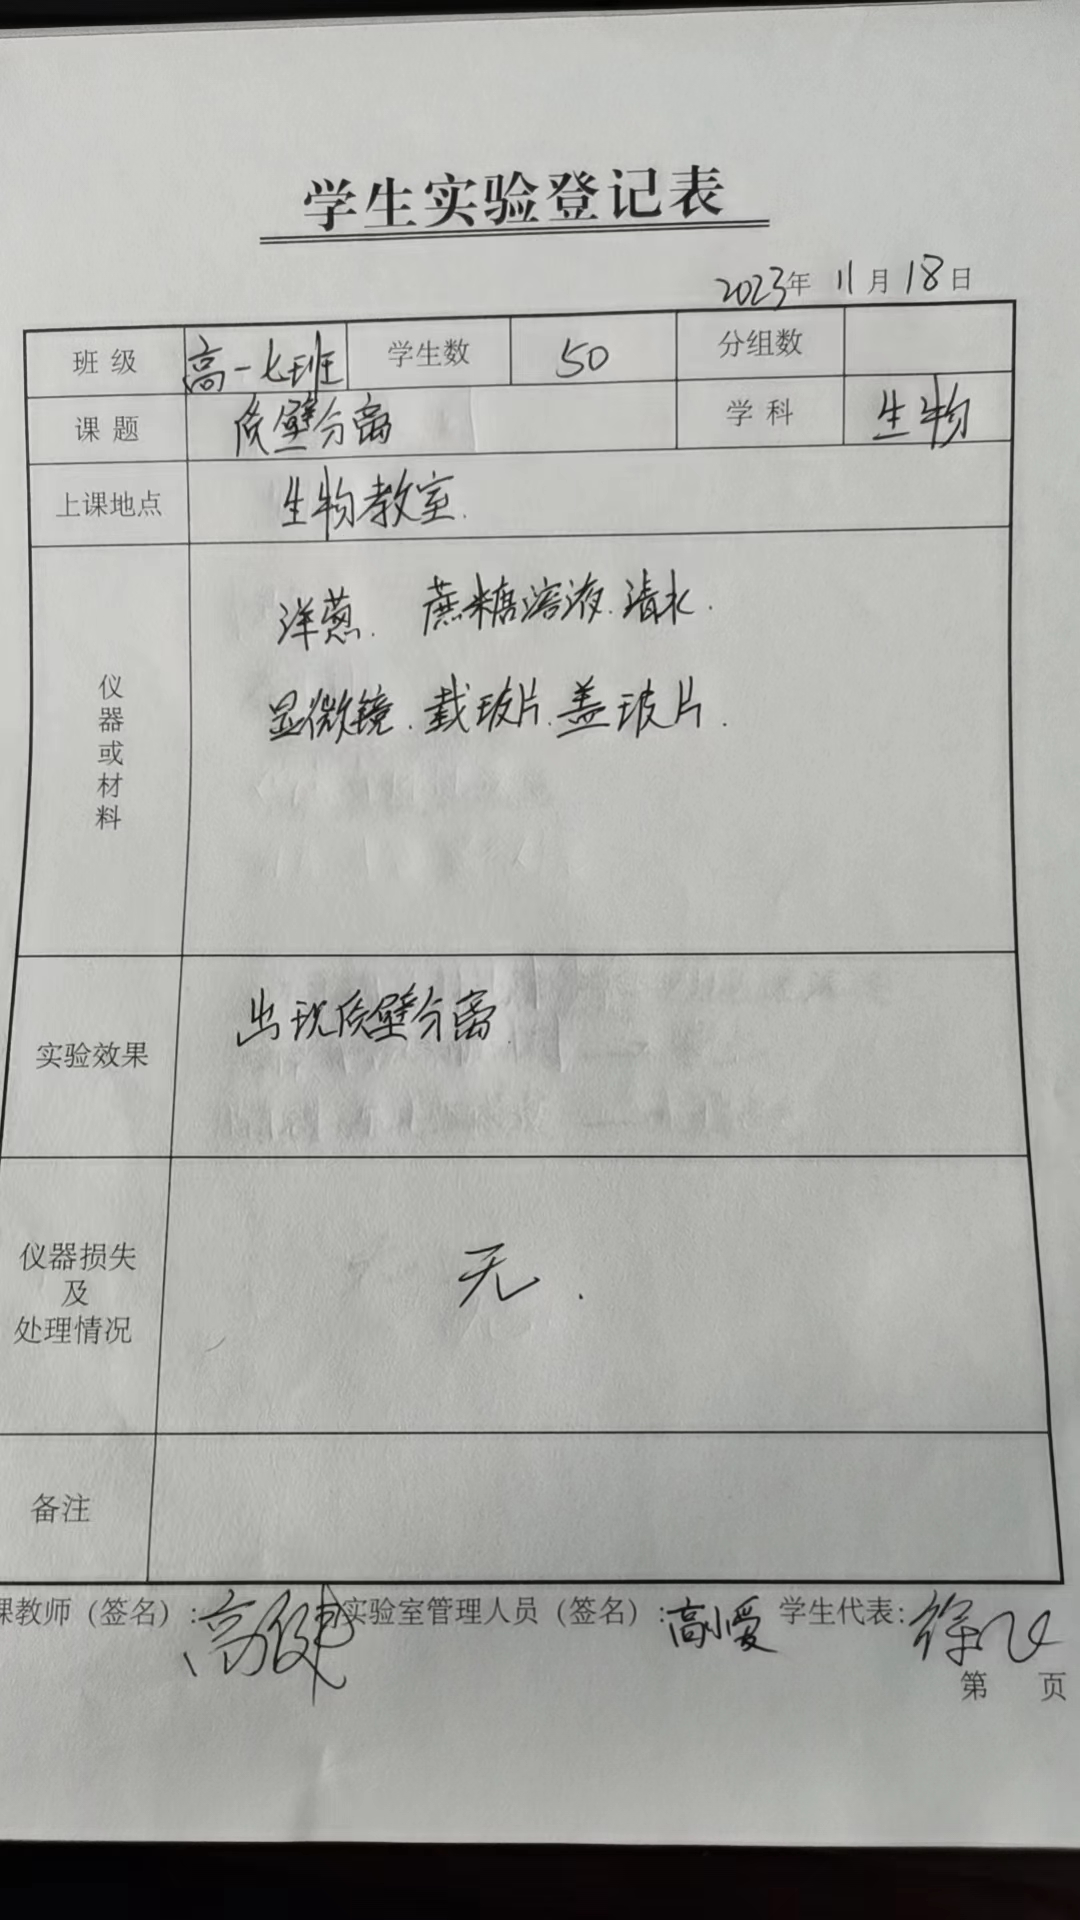 学生实验登记表
2023年 11月 18日
班级 高一七班 学生数 50 分组数
课题 质壁分离 学科 生物
上课地点 生物教室.
仪器或材料
洋葱. 蔗糖溶液. 清水.
显微镜. 载玻片. 盖玻片.
实验效果 出现质壁分离
仪器损失
及
处理情况
无.
备注
课教师（签名）: 实验室管理人员（签名）: 高小爱 学生代表: 徐飞
第 页